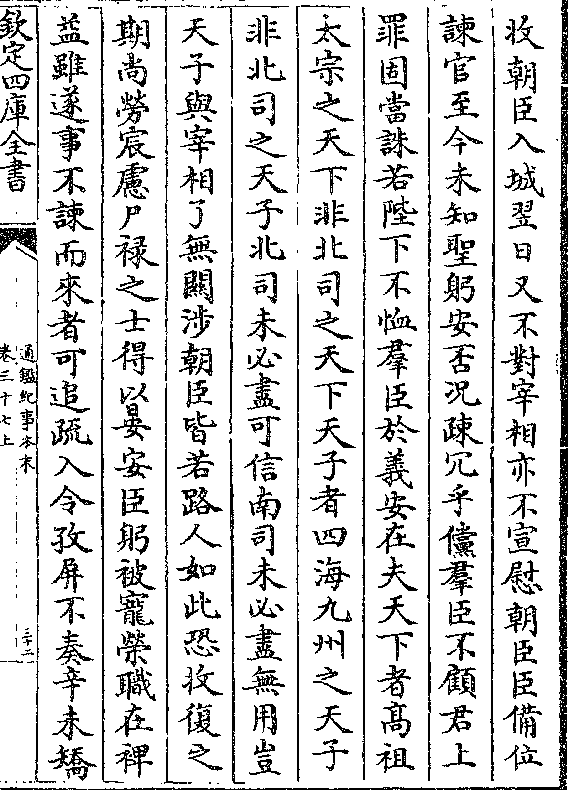 收朝臣入城翌日又不對宰相亦不宣慰朝臣臣備位
諫官至今未知聖躬安否况疎冗乎儻羣臣不顧君上
罪固當誅若陛下不恤羣臣於義安在夫天下者髙祖
太宗之天下非北司之天下天子者四海九州之天子
非北司之天子北司未必盡可信南司未必盡無用豈
天子與宰相了無關涉朝臣皆若路人如此恐收復之
期尚勞宸慮尸禄之士得以晏安臣躬被寵榮職在裨
益雖遂事不諫而來者可追疏入令孜屏不奏辛未矯
欽定四庫全書
通鑑紀事本末
卷三十七上
三十二